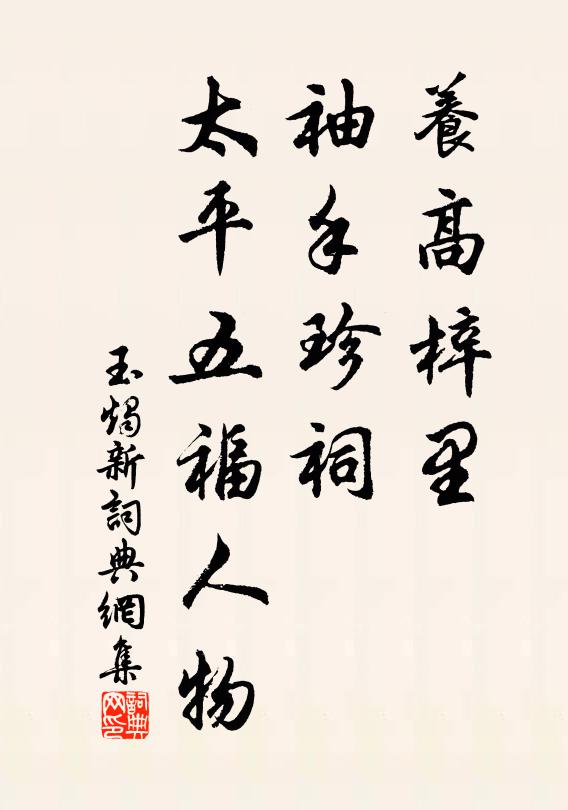 養高梓里
袖手珍祠
太平五福人物
玉燭新詞典網集
詞典網印